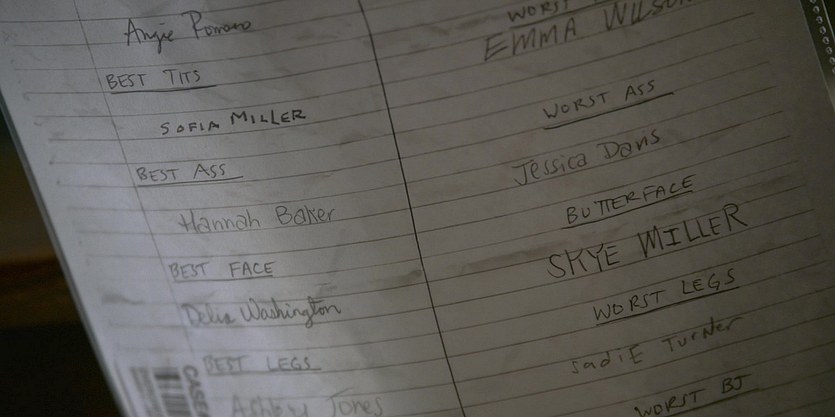 Angie Romero
BEST TITS
SOFIA MILLER
BEST ASS
Hannah Baker
BEST FACE
Delia Washington
BEST LEGS
Ashley Jones
CASE
WORST
EMMA WILSON
WORST ASS
Jessica Davis
BUTTERFACE
SKYE MILLER
WORST LEGS
SadiE TurNer
WORST BJ